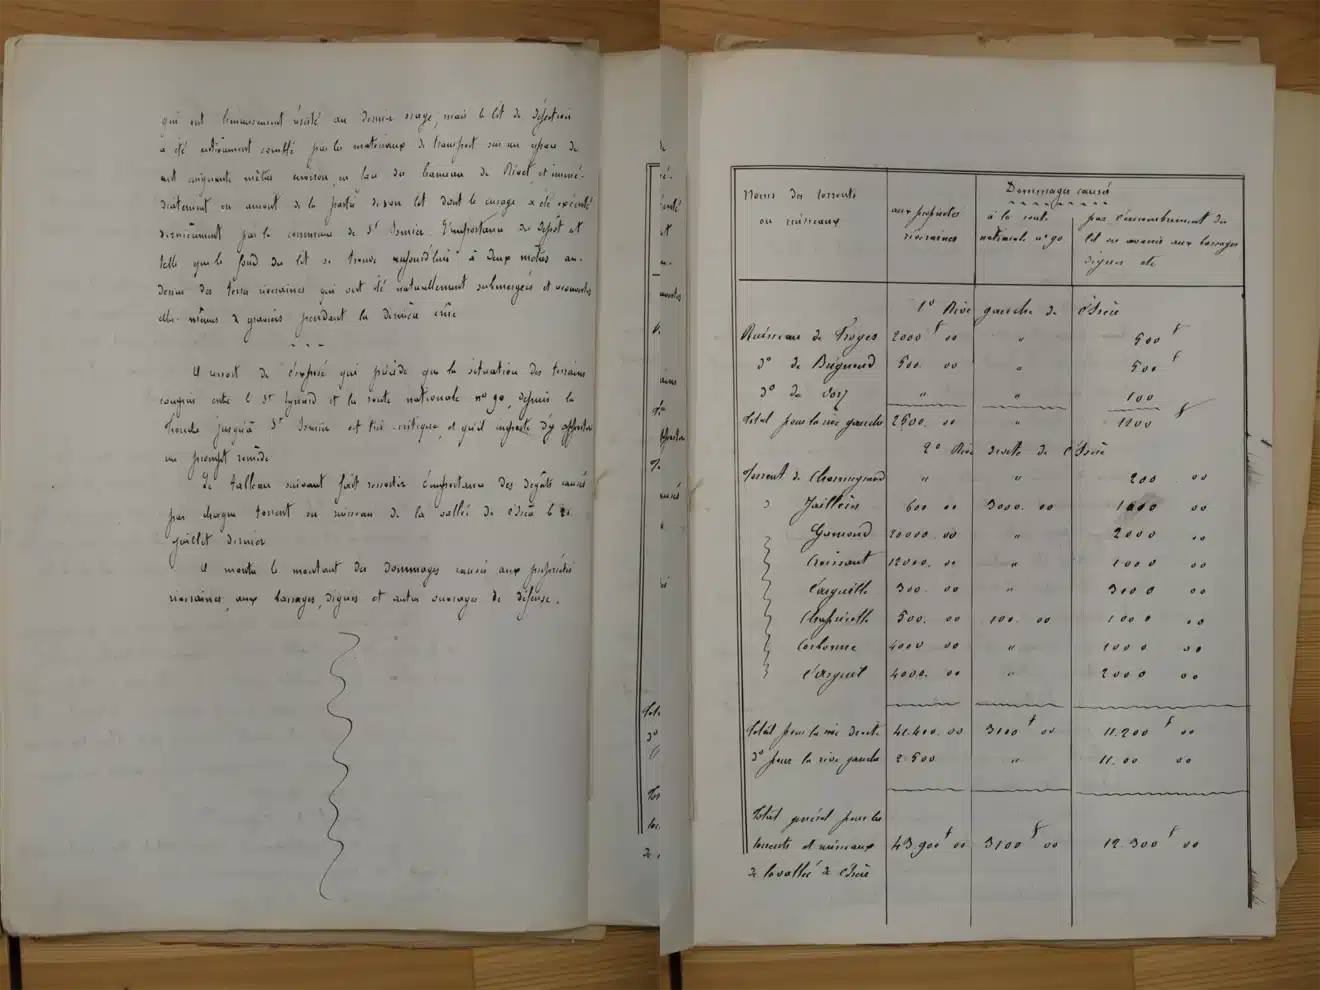 qui ont heureusement résisté au dernier orage, mais le lit de déjection
a été entièrement comblé par les matériaux de transport sur un espace de
cent cinquante mètres environ, en bas du hameau de Rivet, et immé-
diatement en amont de la partie de son lit dont le curage a été exécuté
dernièrement par la commune de St Ismier. L'importance du dépôt est
telle que le fond du lit se trouve aujourd'hui à deux mètres au-
dessus des terres riveraines qui ont été naturellement submergées et recouvertes
elles-mêmes de graviers pendant la dernière crue
Il ressort de l'exposé qui précède que la situation des terrains
compris entre St Eynard et la route nationale n° 90, depuis la
Tronche jusqu'à St Ismier est très critique, et qu'il importe d'y apporter
un prompt remède
Le tableau suivant fait ressortir l'importance des dégâts causés
par chaque torrent ou ruisseau de la vallée de l'Isère le
juillet dernier
Il montre le montant des dommages causés aux propriétés
riveraines, aux barrages, digues et autres ouvrages de défense.
Noms des torrents
ou ruisseaux
Dommages causés
aux propriétés
riveraines
à la route
nationale n° 90
par l'encombrement du
lit ou avaries aux barrages
digues etc
1° Rive gauche de l'Isère
Ruisseau de Froges 2000 f 00 " 500 f
d° de Brignoud 500. 00 " 500 f
d° de " " 100
Total pour la rive gauche 2500. 00 " 1100 f
2° Rive droite de l'Isère
Torrent de " " 200 00
Jaillères 600 00 3000. 00 1000 00
Gamond 20000. 00 " 2000 00
Croissant 12000. 00 " 1000 00
300. 00 " 3000 00
500. 00 100. 00 1000 00
Corbonne 4000 00 " 1000 00
4000. 00 " 2000 00
Total pour la rive droite 41.400. 00 3100 f 00 11.200 f 00
d° pour la rive gauche 2.500 " 11.00 00
Total général pour les
torrents et ruisseaux 43.900 f 00 3100 f 00 12.300 f 00
de la vallée de l'Isère